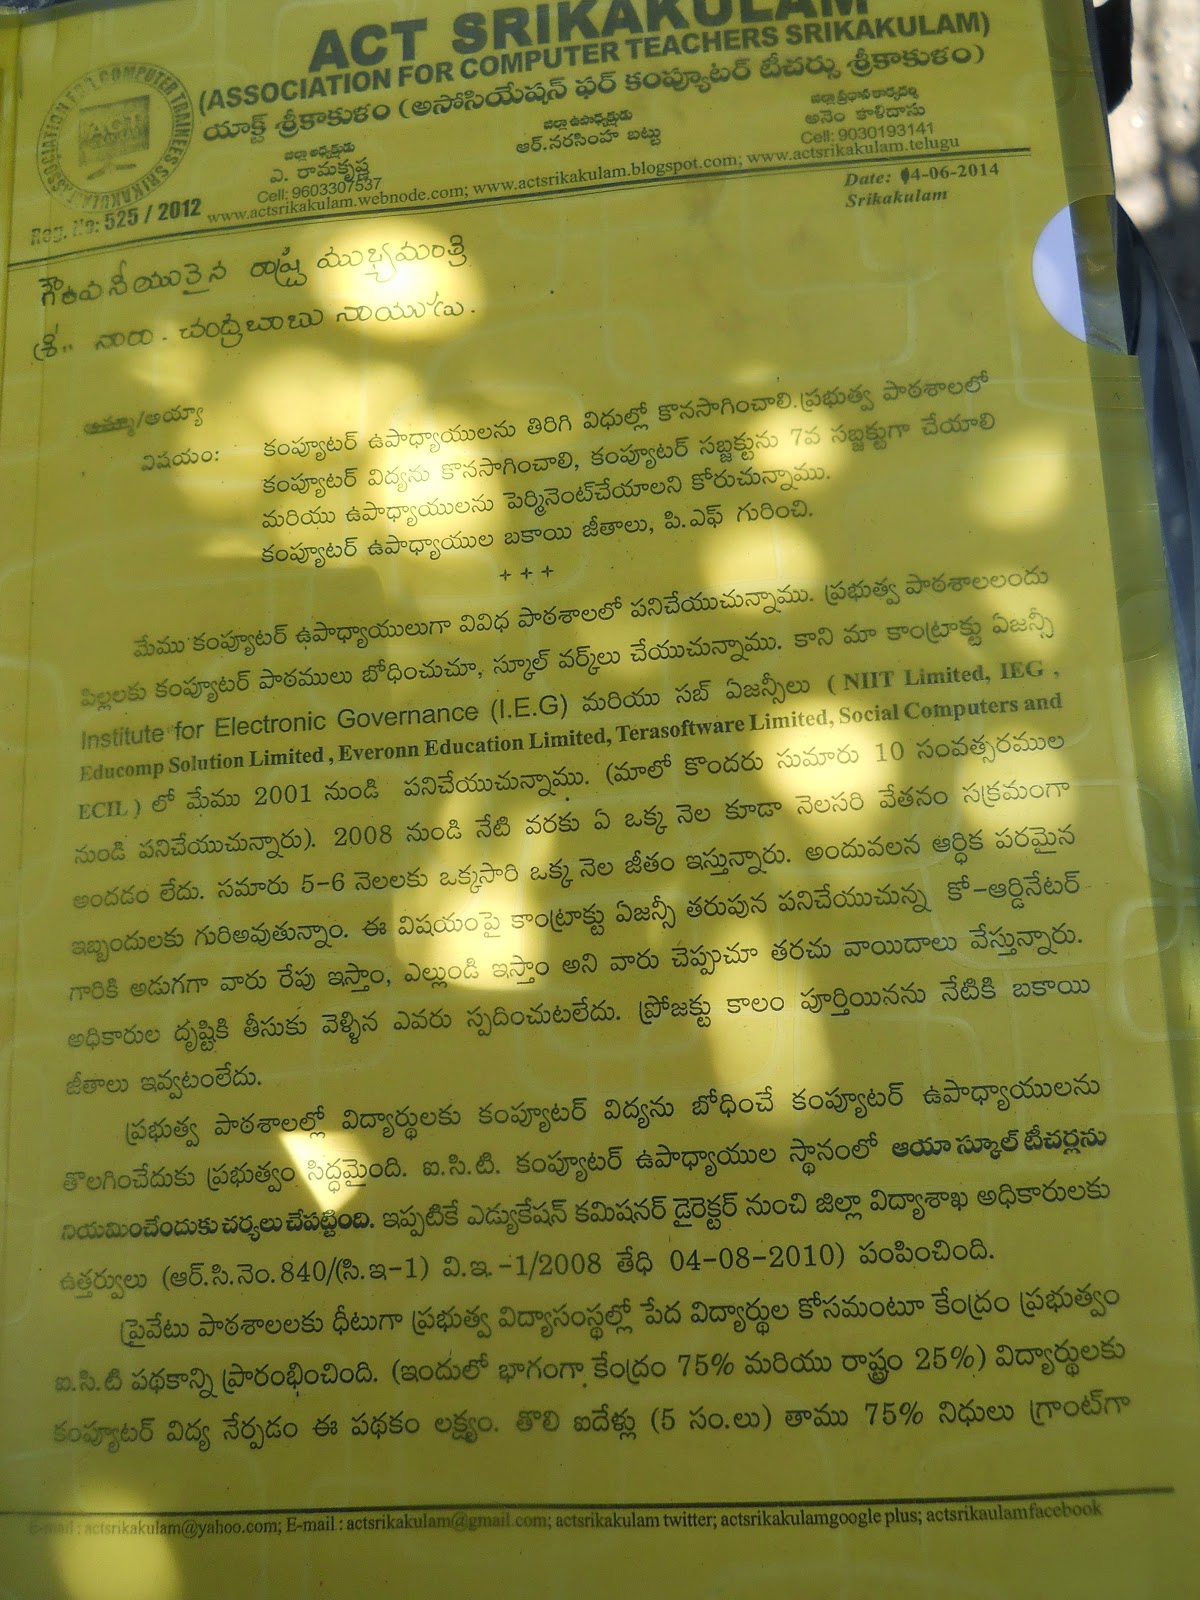 ACT SRIKAKULAM
(ASSOCIATION FOR COMPUTER TEACHERS SRIKAKULAM)
యాక్ట్ శ్రీకాకుళం (అసోసియేషన్ ఫర్ కంప్యూటర్ టీచర్సు శ్రీకాకుళం)
జిల్లా అధ్యక్షుడు
ఎ. రామకృష్ణ
Cell: 9603307537
జిల్లా ఉపాధ్యక్షుడు
ఆర్.నరసింహ బట్టు
జిల్లా ప్రధాన కార్యదర్శి
అనెం కాళిదాసు
Cell: 9030193141
ASSOCIATION FOR COMPUTER TRAINEES SRIKAKULAM
Reg. No: 525 / 2012
www.actsrikakulam.webnode.com; www.actsrikakulam.blogspot.com; www.actsrikakulam.telugu
Date: 04-06-2014
Srikakulam
గౌరవనీయులైన రాష్ట్ర ముఖ్యమంత్రి
శ్రీ.. నారా. చంద్రబాబు నాయుడు.
అమ్మా/అయ్యా
విషయం: కంప్యూటర్ ఉపాధ్యాయులను తిరిగి విధుల్లో కొనసాగించాలి.ప్రభుత్వ పాఠశాలలో
కంప్యూటర్ విద్యను కొనసాగించాలి, కంప్యూటర్ సబ్జక్టును 7వ సబ్జక్టుగా చేయాలి
మరియు ఉపాధ్యాయులను పెర్మినెంట్‌చేయాలని కోరుచున్నాము.
కంప్యూటర్ ఉపాధ్యాయుల బకాయి జీతాలు, పి.ఎఫ్ గురించి.
+ + +
మేము కంప్యూటర్ ఉపాధ్యాయులుగా వివిధ పాఠశాలలో పనిచేయుచున్నాము. ప్రభుత్వ పాఠశాలలందు
పిల్లలకు కంప్యూటర్ పాఠములు బోధించుచూ, స్కూల్ వర్క్‌లు చేయుచున్నాము. కాని మా కాంట్రాక్టు ఏజన్సీ
Institute for Electronic Governance (I.E.G) మరియు సబ్ ఏజన్సీలు ( NIIT Limited, IEG ,
Educomp Solution Limited , Everonn Education Limited, Terasoftware Limited, Social Computers and
ECIL ) లో మేము 2001 నుండి పనిచేయుచున్నాము. (మాలో కొందరు సుమారు 10 సంవత్సరముల
నుండి పనిచేయుచున్నారు). 2008 నుండి నేటి వరకు ఏ ఒక్క నెల కూడా నెలసరి వేతనం సక్రమంగా
అందడం లేదు. సమారు 5-6 నెలలకు ఒక్కసారి ఒక్క నెల జీతం ఇస్తున్నారు. అందువలన ఆర్థిక పరమైన
ఇబ్బందులకు గురిఅవుతున్నాం. ఈ విషయంపై కాంట్రాక్టు ఏజన్సీ తరుపున పనిచేయుచున్న కో-ఆర్డినేటర్
గారికి అడుగగా వారు రేపు ఇస్తాం, ఎల్లుండి ఇస్తాం అని వారు చెప్పుచూ తరచు వాయిదాలు వేస్తున్నారు.
అధికారుల దృష్టికి తీసుకు వెళ్ళిన ఎవరు స్పదించుటలేదు. ప్రోజక్టు కాలం పూర్తియినను నేటికి బకాయి
జీతాలు ఇవ్వటంలేదు.
ప్రభుత్వ పాఠశాలల్లో విద్యార్థులకు కంప్యూటర్ విద్యను బోధించే కంప్యూటర్ ఉపాధ్యాయులను
తొలగించేదుకు ప్రభుత్వం సిద్ధమైంది. ఐ.సి.టి. కంప్యూటర్ ఉపాధ్యాయుల స్థానంలో ఆయా స్కూల్ టీచర్లను
నియమించేందుకు చర్యలు చేపట్టింది. ఇప్పటికే ఎడ్యుకేషన్ కమిషనర్ డైరెక్టర్ నుంచి జిల్లా విద్యాశాఖ అధికారులకు
ఉత్తర్వులు (ఆర్.సి.నెం.840/(సి.ఇ-1) వి.ఇ.-1/2008 తేధి 04-08-2010) పంపించింది.
ప్రైవేటు పాఠశాలలకు ధీటుగా ప్రభుత్వ విద్యాసంస్థల్లో పేద విద్యార్థుల కోసమంటూ కేంద్రం ప్రభుత్వం
ఐ.సి.టి పథకాన్ని ప్రారంభించింది. (ఇందులో భాగంగా కేంద్రం 75% మరియు రాష్ట్రం 25%) విద్యార్థులకు
కంప్యూటర్ విద్య నేర్పడం ఈ పథకం లక్ష్యం. తొలి ఐదేళ్లు (5 సం.లు) తాము 75% నిధులు గ్రాంట్‌గా
E-mail : actsrikakulam@yahoo.com; E-mail : actsrikakulam@gmail.com; actsrikakulam twitter; actsrikakulamgoogle plus; actsrikaulamfacebook